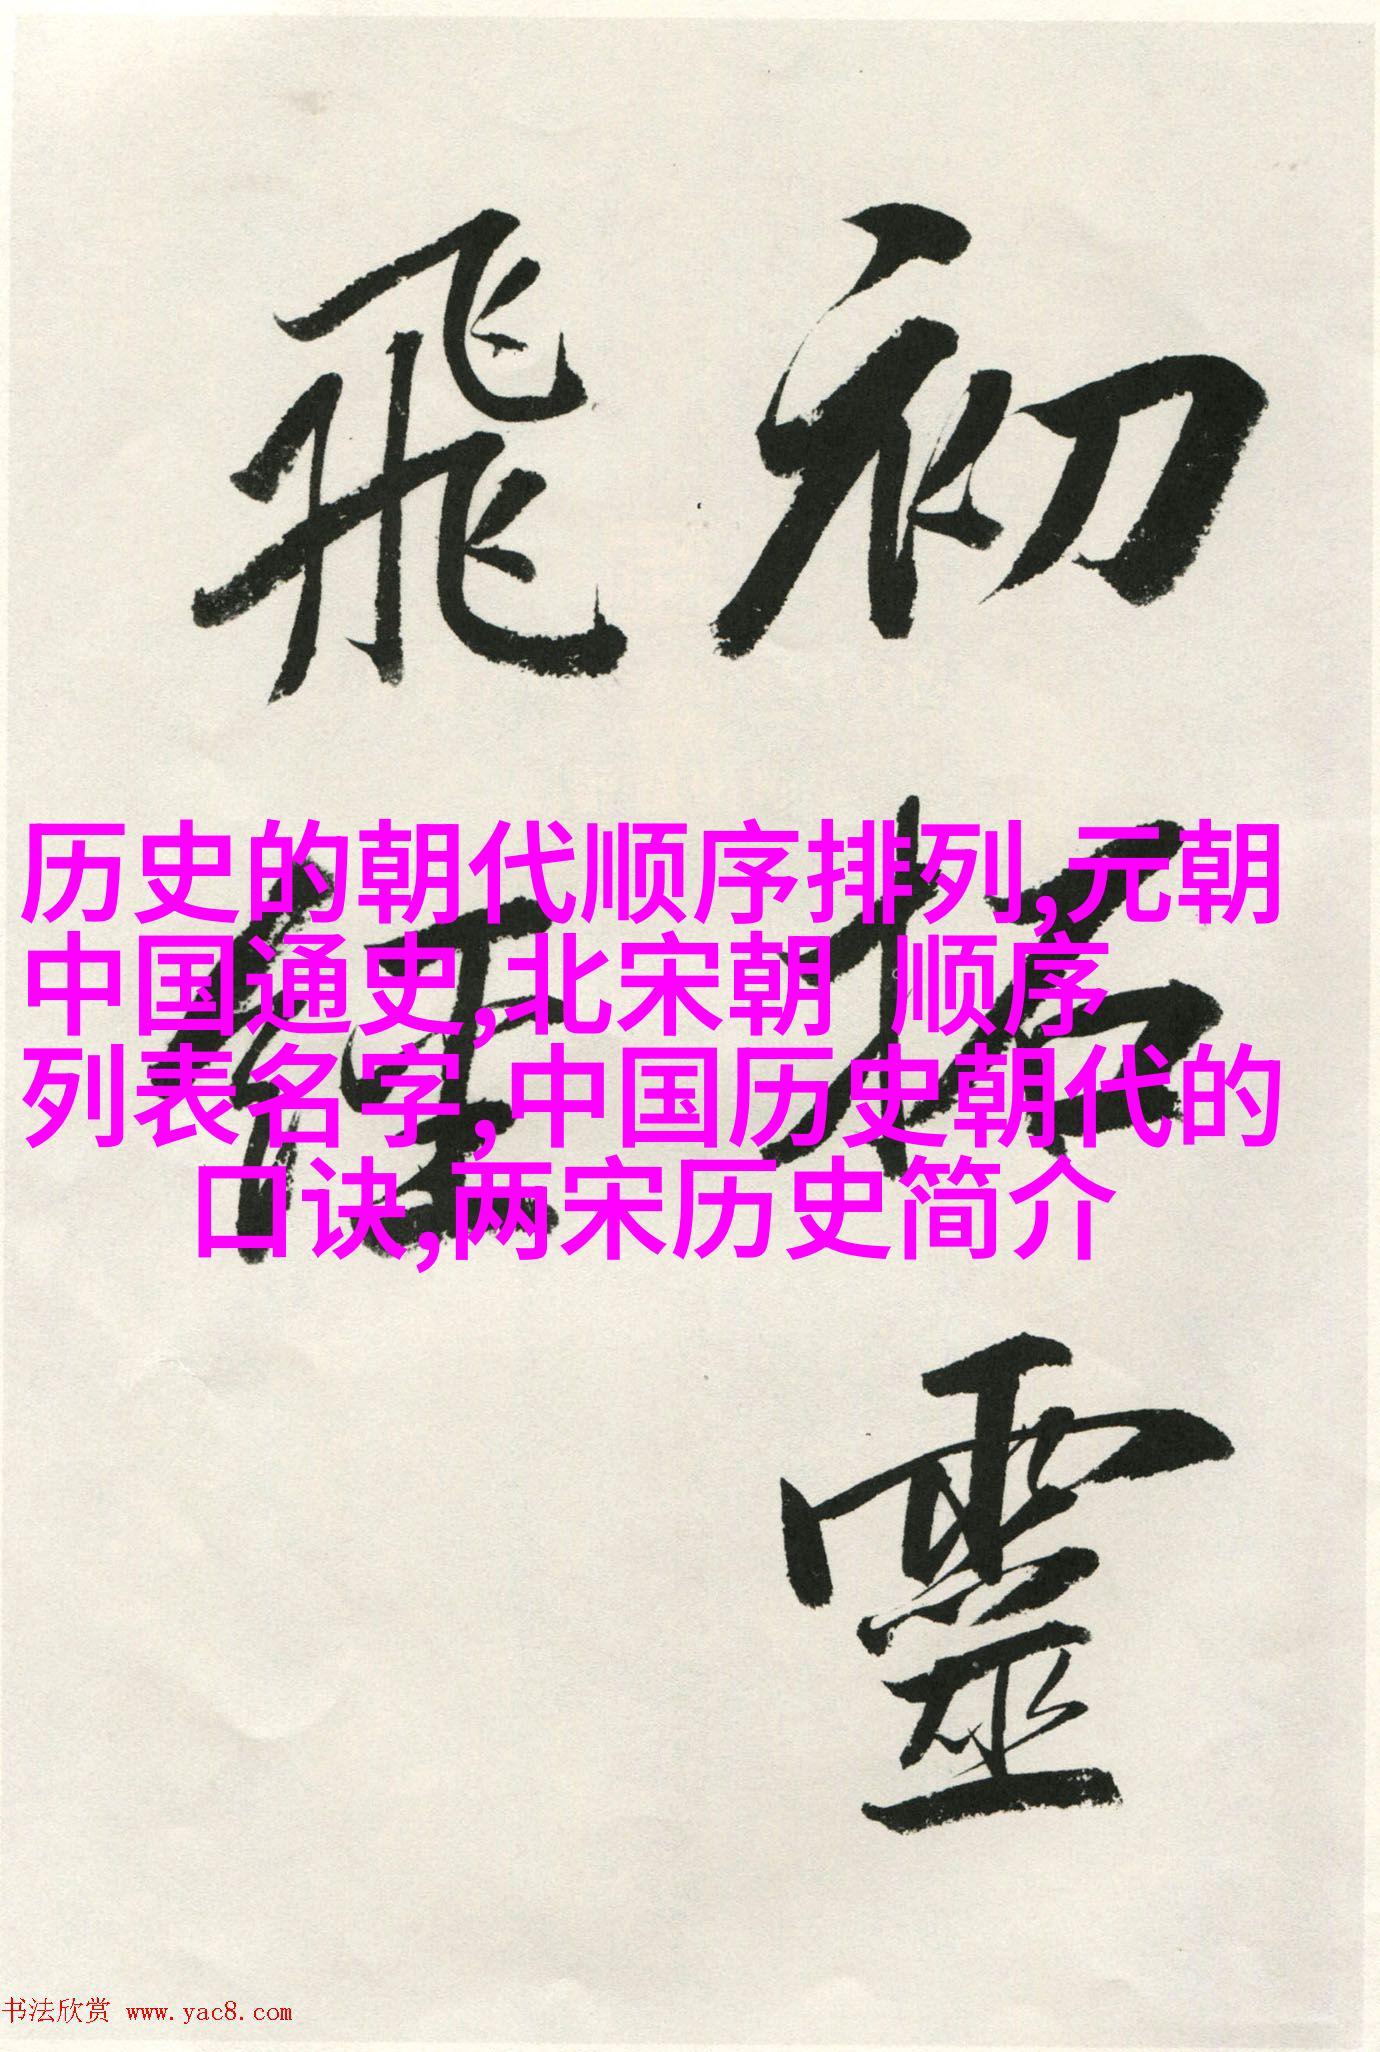 初拓靈
飛經
历史的朝代顺序排列,元朝
中国通史,北宋朝 顺序
列表名字,中国历史朝代的
口诀,两宋历史简介
书法欣赏 www.yac8.com